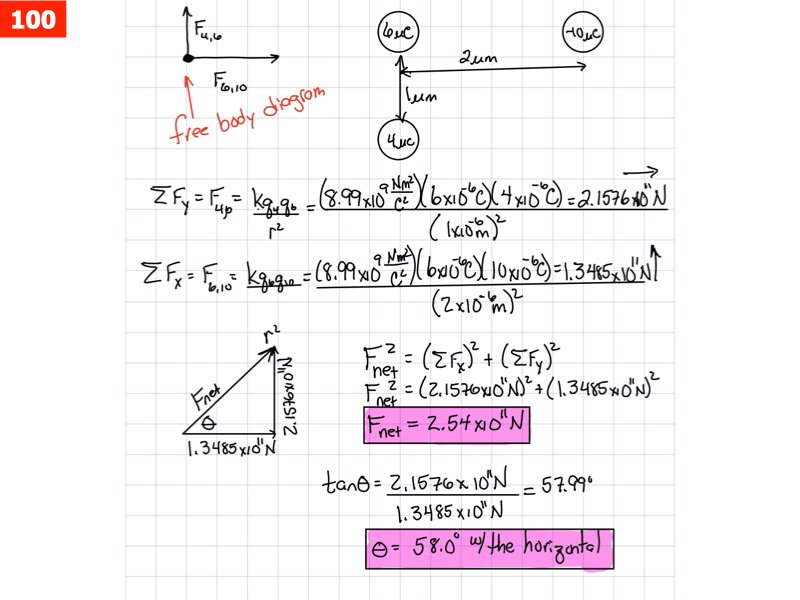 100
F₄,₆
F₆,₁₀
free body diagram
6µC
-10µC
2µm
1µm
4µC
ΣFy = F₄,₆ = kq₄q₆/r² = (8.99x10⁹ Nm²/C²)(6x10⁻⁶C)(4x10⁻⁶C)/(1x10⁻⁶m)² = 2.1576x10¹¹N →
ΣFx = F₆,₁₀ = kq₆q₁₀/r² = (8.99x10⁹ Nm²/C²)(6x10⁻⁶C)(10x10⁻⁶C)/(2x10⁻⁶m)² = 1.3485x10¹¹N ↑
Fnet
θ
2.1576x10¹¹N
1.3485x10¹¹N
Fnet² = (ΣFx)² + (ΣFy)²
Fnet² = (2.1576x10¹¹N)² + (1.3485x10¹¹N)²
Fnet = 2.54x10¹¹N
tanθ = 2.1576x10¹¹N/1.3485x10¹¹N = 57.99°
θ = 58.0° w/ the horizontal